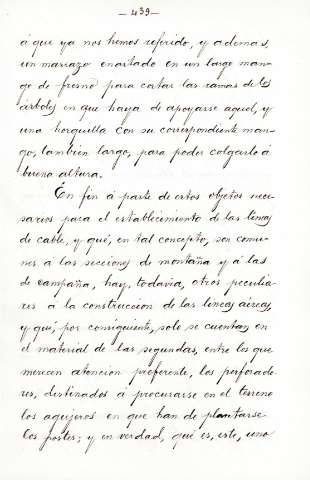 —439—
á que ya nos hemos referido, y ademas,
un marrazo enastado en un largo man-
go de fresno para cortar las ramas de los
árboles en que haya de apoyarse aquel, y
una horquilla con su correspondiente man-
go, tambien largo, para poder colgarlo á
buena altura.
En fin á parte de estos objetos nece-
sarios para el establecimiento de las lineas
de cable, y que, en tal concepto, son comu-
nes á las secciones de montaña y á las
de campaña, hay, todavia, otros peculia-
res á la construccion de las lineas aéreas,
y que, por consiguiente, solo se cuentan en
el material de las segundas, entre los que
merecen atencion preferente, los perforado
res, destinados á procurarse en el terreno
los agujeros en que han de plantarse
los postes; y en verdad, que es, este, uno